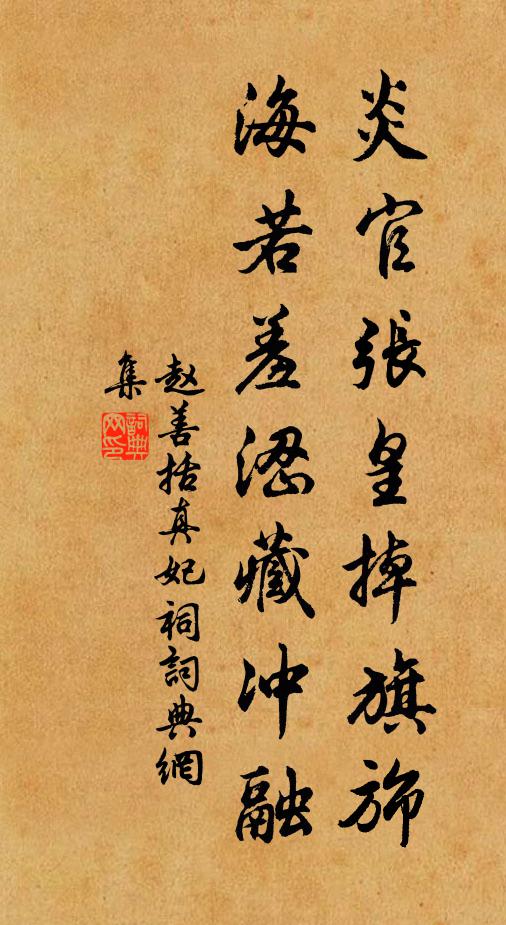 炎官張皇掉旗斾
海若羞澀藏冲融
赵善括真妃祠詞典網
集
詞典
网印